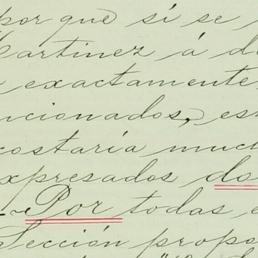 por que si se
Martinez á d
exactamente
ncionados, es
costaría muc
xpresados do
Por todas e
Sección propo